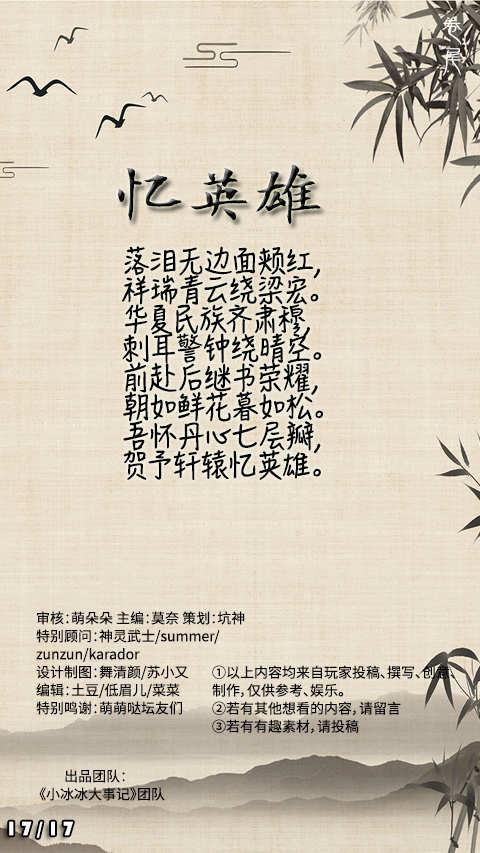 卷尾
忆英雄
落泪无边面颊红,
祥瑞青云绕梁宏。
华夏民族齐肃穆,
刺耳警钟绕晴空。
前赴后继书荣耀,
朝如鲜花暮如松。
吾怀丹心七层瓣,
贺予轩辕忆英雄。
审核:萌朵朵 主编:莫奈 策划:坑神
特别顾问:神灵武士/summer/
zunzun/karador
设计制图:舞清颜/苏小又
编辑:土豆/低眉儿/菜菜
特别鸣谢:萌萌哒坛友们
①以上内容均来自玩家投稿、撰写、创意、
制作,仅供参考、娱乐。
②若有其他想看的内容,请留言
③若有有趣素材,请投稿
出品团队:
《小冰冰大事记》团队
17/17